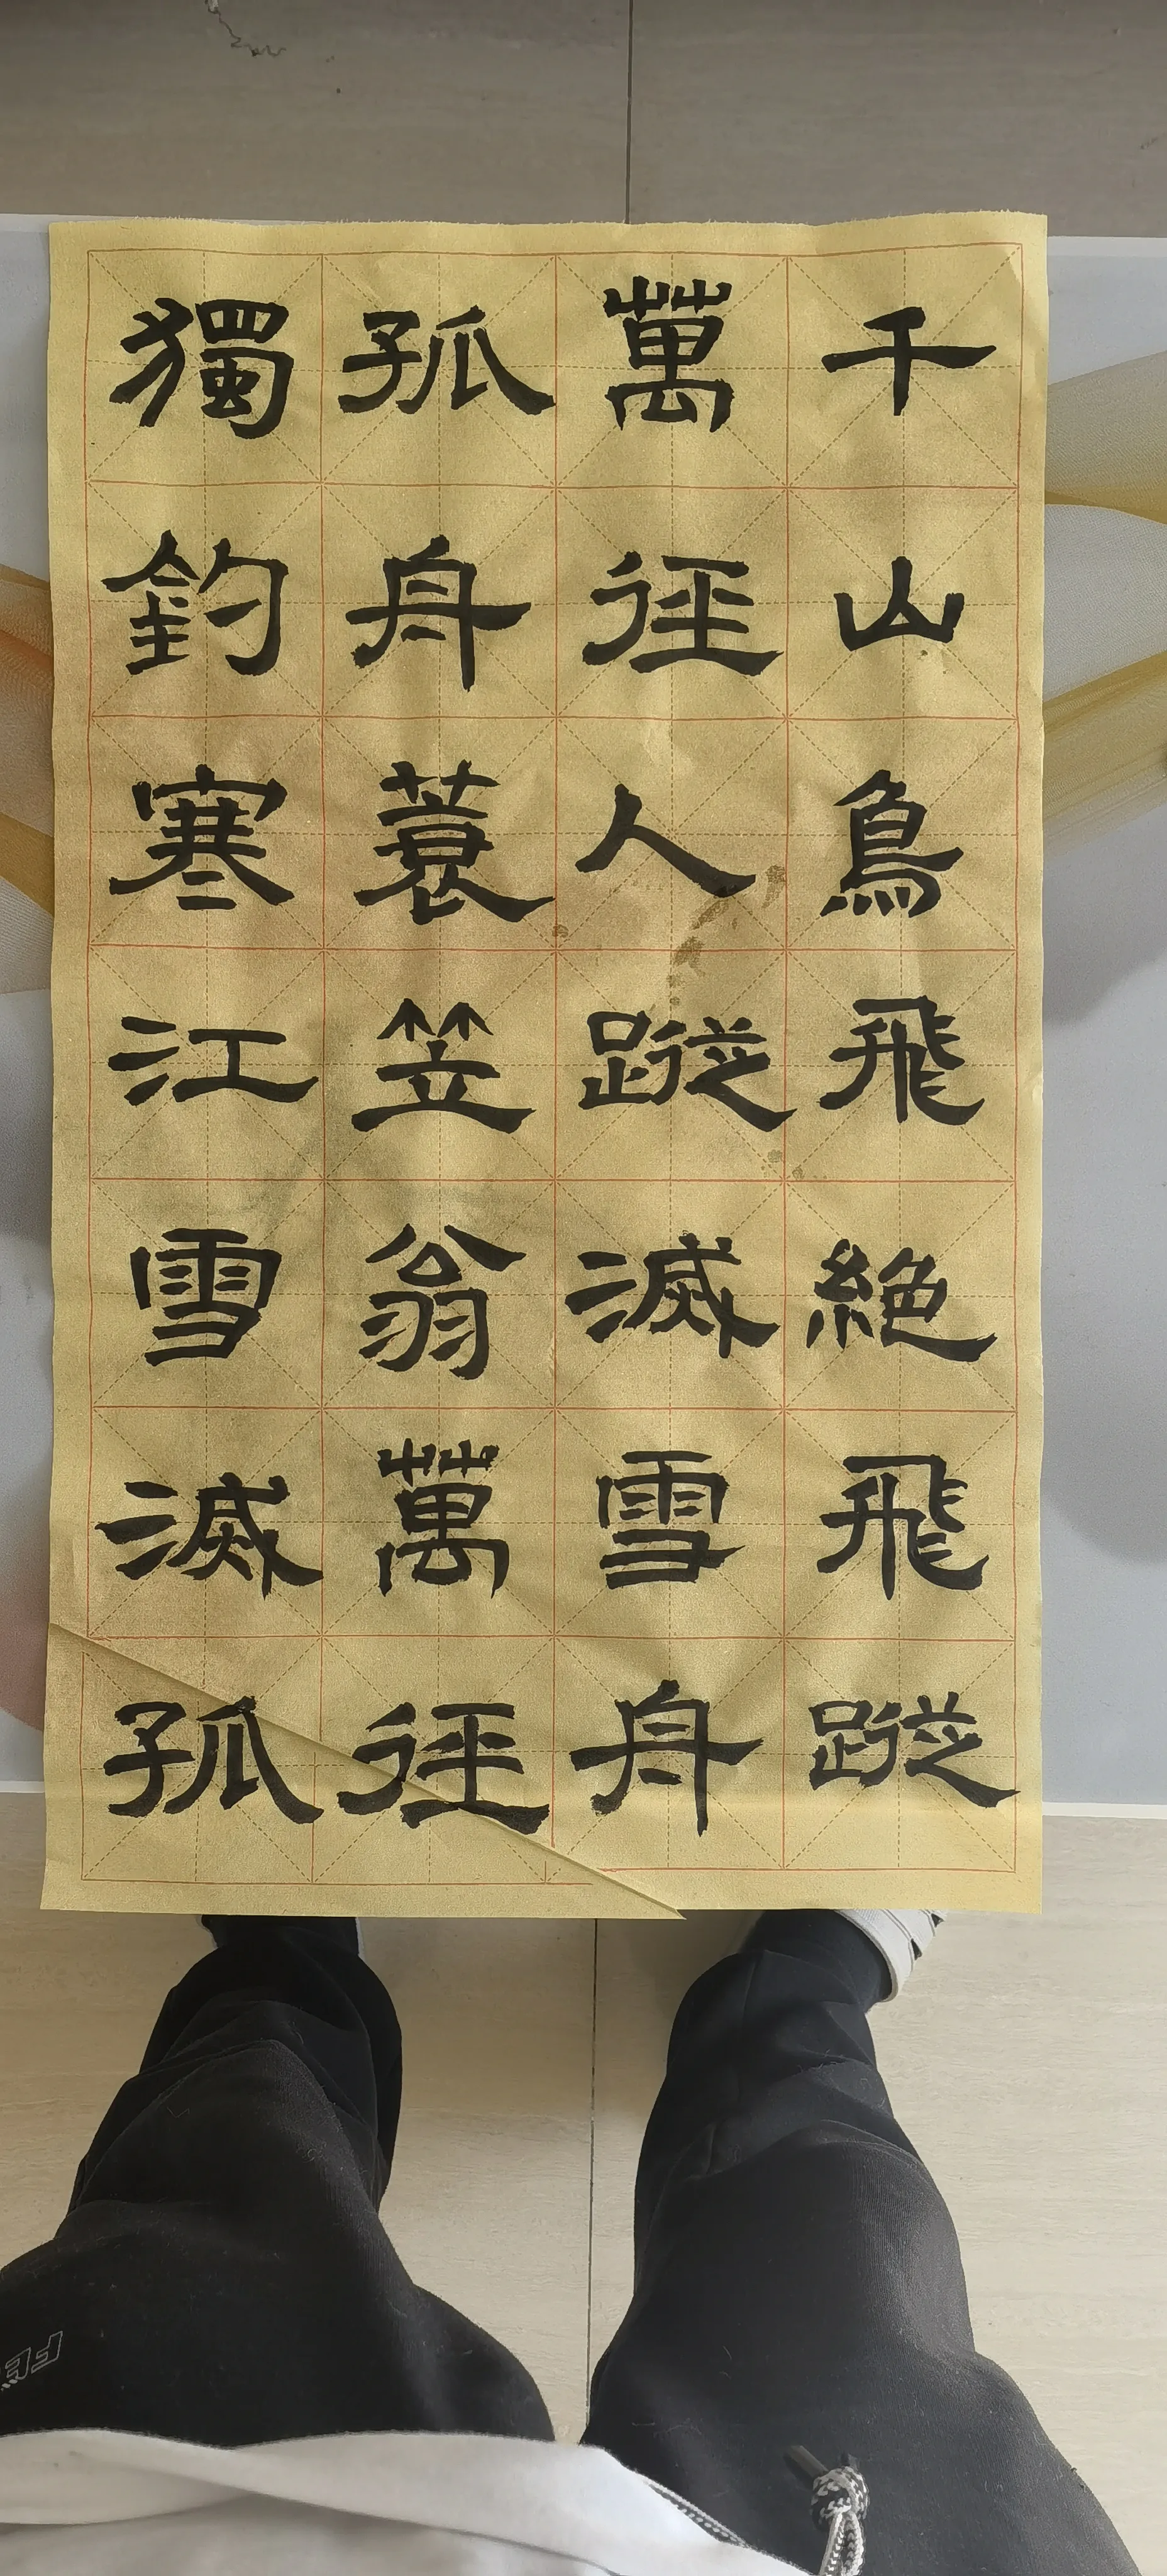 千山鳥飛絶飛蹤
萬徑人蹤滅雪舟
孤舟蓑笠翁萬徑
獨釣寒江雪滅孤